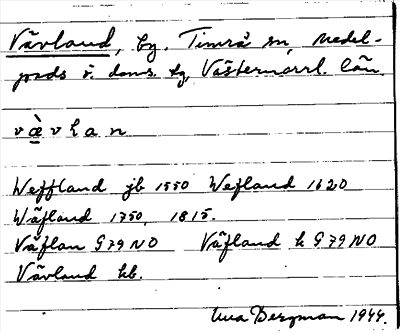 Vävland, by. Timrå sn, Medel-
pads v. doms. tg, Västernorrl. län.
v æ̀ v l a n
Weffland jb 1550 Wefland 1620
Wäfland 1750, 1815.
Väflan G 79 NO Väfland k G 79 NO
Vävland kb.
Bergman 1944.